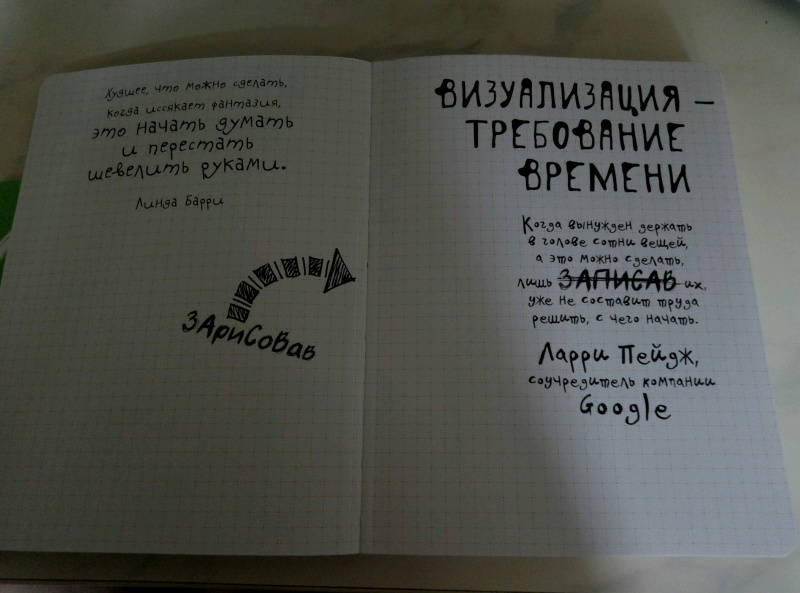 Худшее, что можно сделать,
когда иссякает фантазия,
это начать думать
и перестать
шевелить руками.
Линда Барри
ЗАРИСОВАВ
ВИЗУАЛИЗАЦИЯ –
ТРЕБОВАНИЕ
ВРЕМЕНИ
Когда вынужден держать
в голове сотни вещей,
а это можно сделать,
лишь ЗАПИСАВ их,
уже не составит труда
решить, с чего начать.
Ларри Пейдж,
соучредитель компании
Google